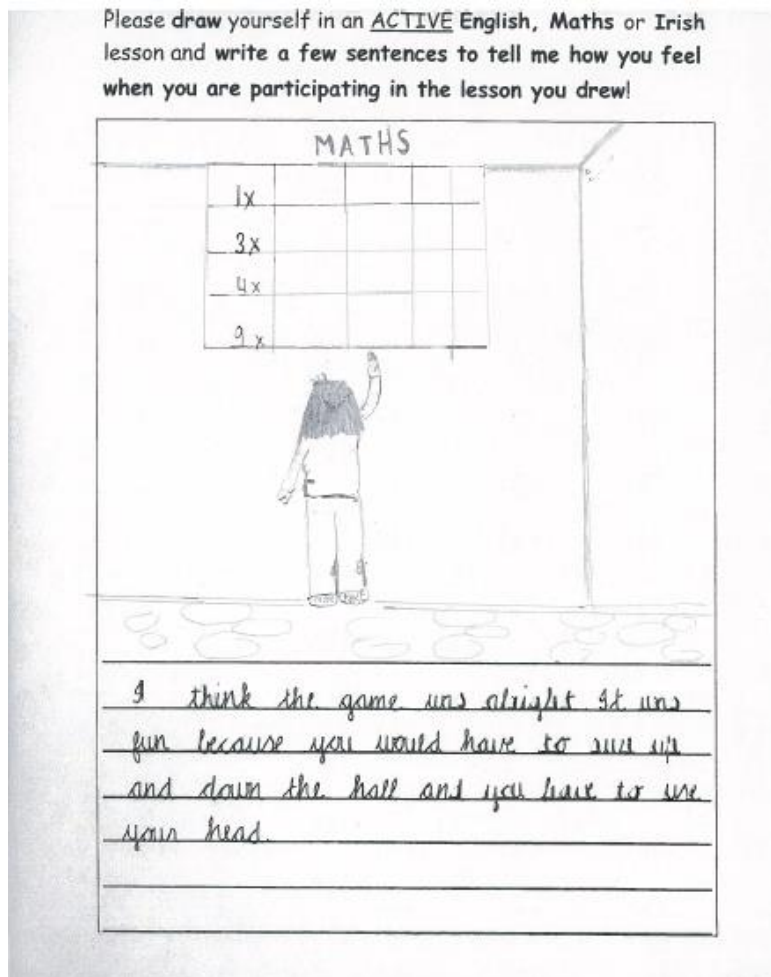 Please draw yourself in an ACTIVE English, Maths or Irish
lesson and write a few sentences to tell me how you feel
when you are participating in the lesson you drew!
MATHS
1x
3x
4x
9x
I think the game was alright It was
fun because you would have to run up
and down the hall and you have to use
your head.